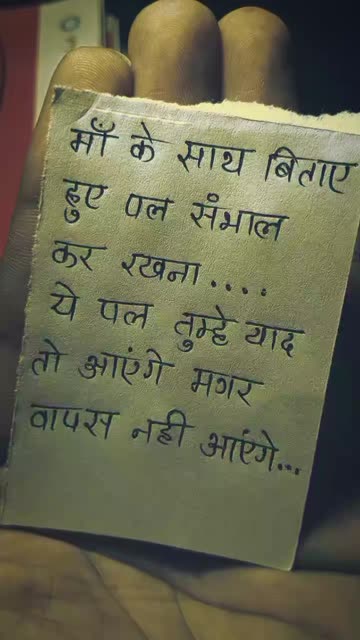 माँ के साथ बिताए
हुए पल संभाल
कर रखना....
ये पल तुम्हे याद
तो आएंगे मगर
वापस नही आएंगे...